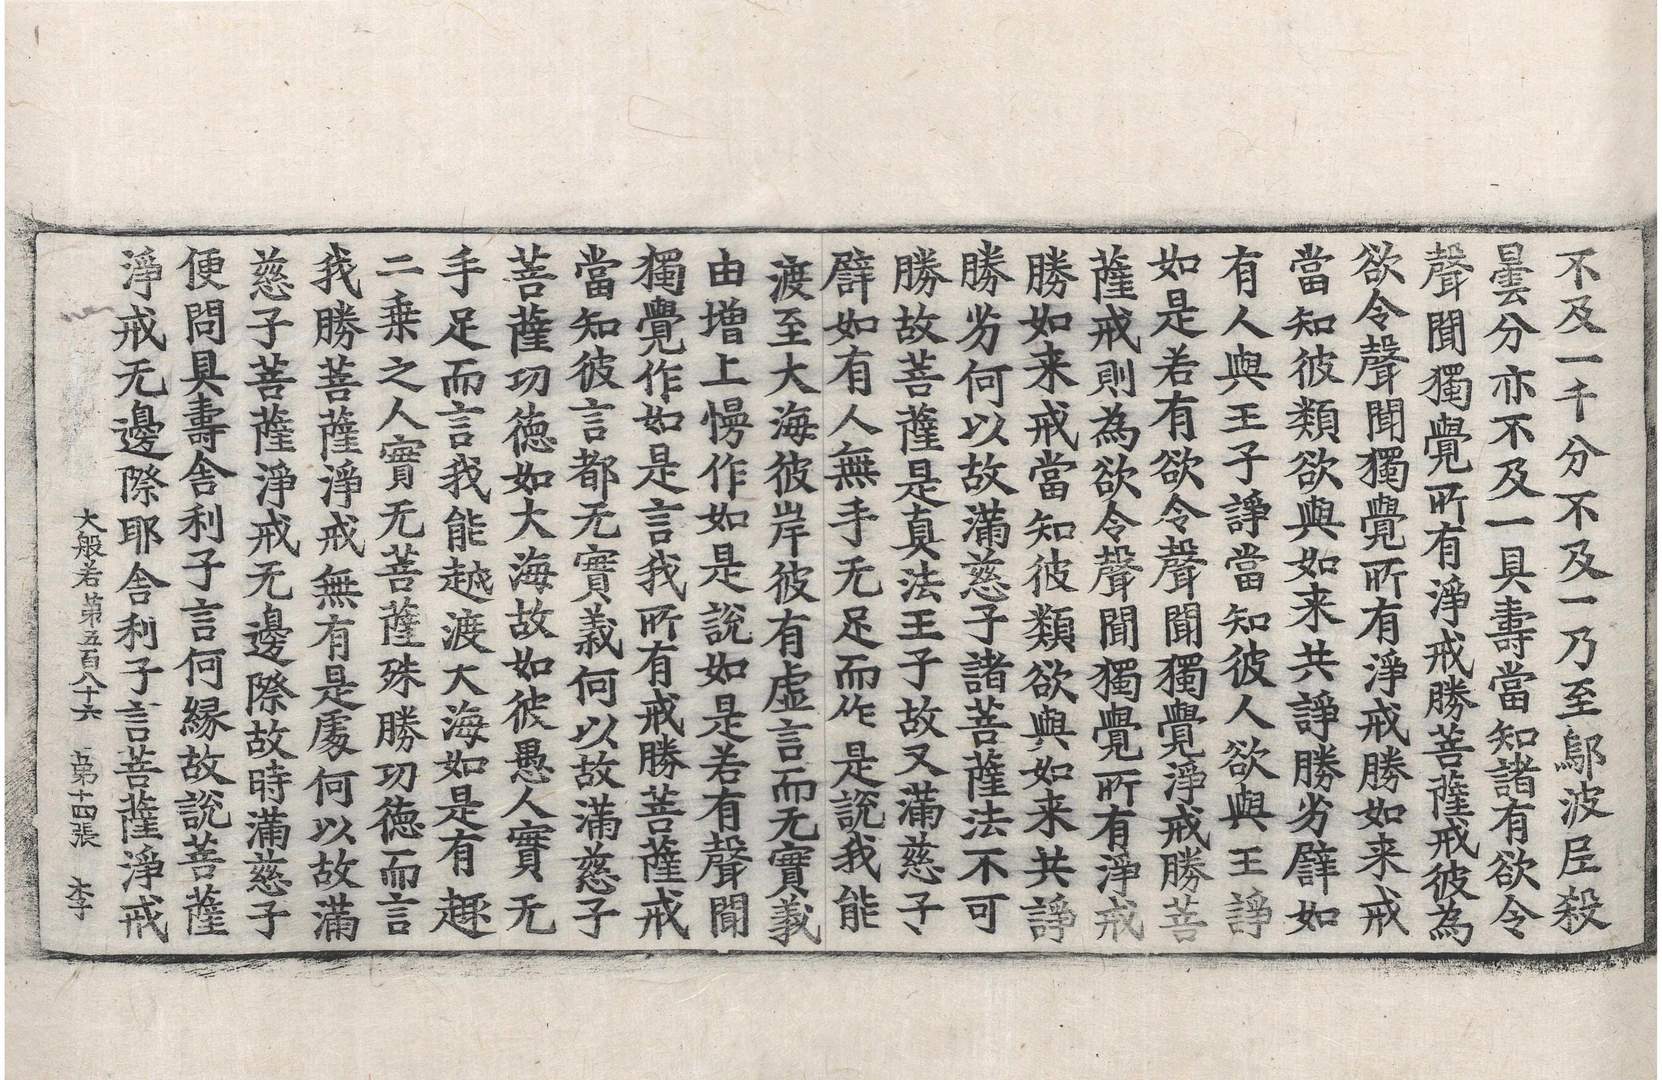 不及一千分不及一乃至鄔波尼殺
曇分亦不及一具壽當知諸有欲令
聲聞獨覺所有淨戒勝菩薩戒彼為
欲令聲聞獨覺所有淨戒勝如来戒
當知彼類欲與如来共諍勝劣譬如
有人與王子諍當知彼人欲與王諍
如是若有欲令聲聞獨覺淨戒勝菩
薩戒則為欲令聲聞獨覺所有淨戒
勝如来戒當知彼類欲與如来共諍
勝劣何以故滿慈子諸菩薩法不可
勝故菩薩是真法王子故又滿慈子
譬如有人無手无足而作是說我能
渡至大海彼岸彼有虛言而无實義
由增上慢作如是說如是若有聲聞
獨覺作如是言我所有戒勝菩薩戒
當知彼言都无實義何以故滿慈子
菩薩功德如大海故如彼愚人實无
手足而言我能越渡大海如是有趣
二乗之人實无菩薩殊勝功德而言
我勝菩薩淨戒無有是處何以故滿
慈子菩薩淨戒无邊際故時滿慈子
便問具壽舎利子言何縁故說菩薩
淨戒无邊際耶舎利子言菩薩淨戒
大般若第五百八十六　第十四張　李